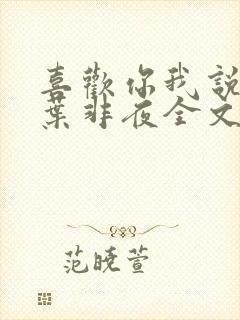 喜歡你我說
葉非夜全文
范曉萱